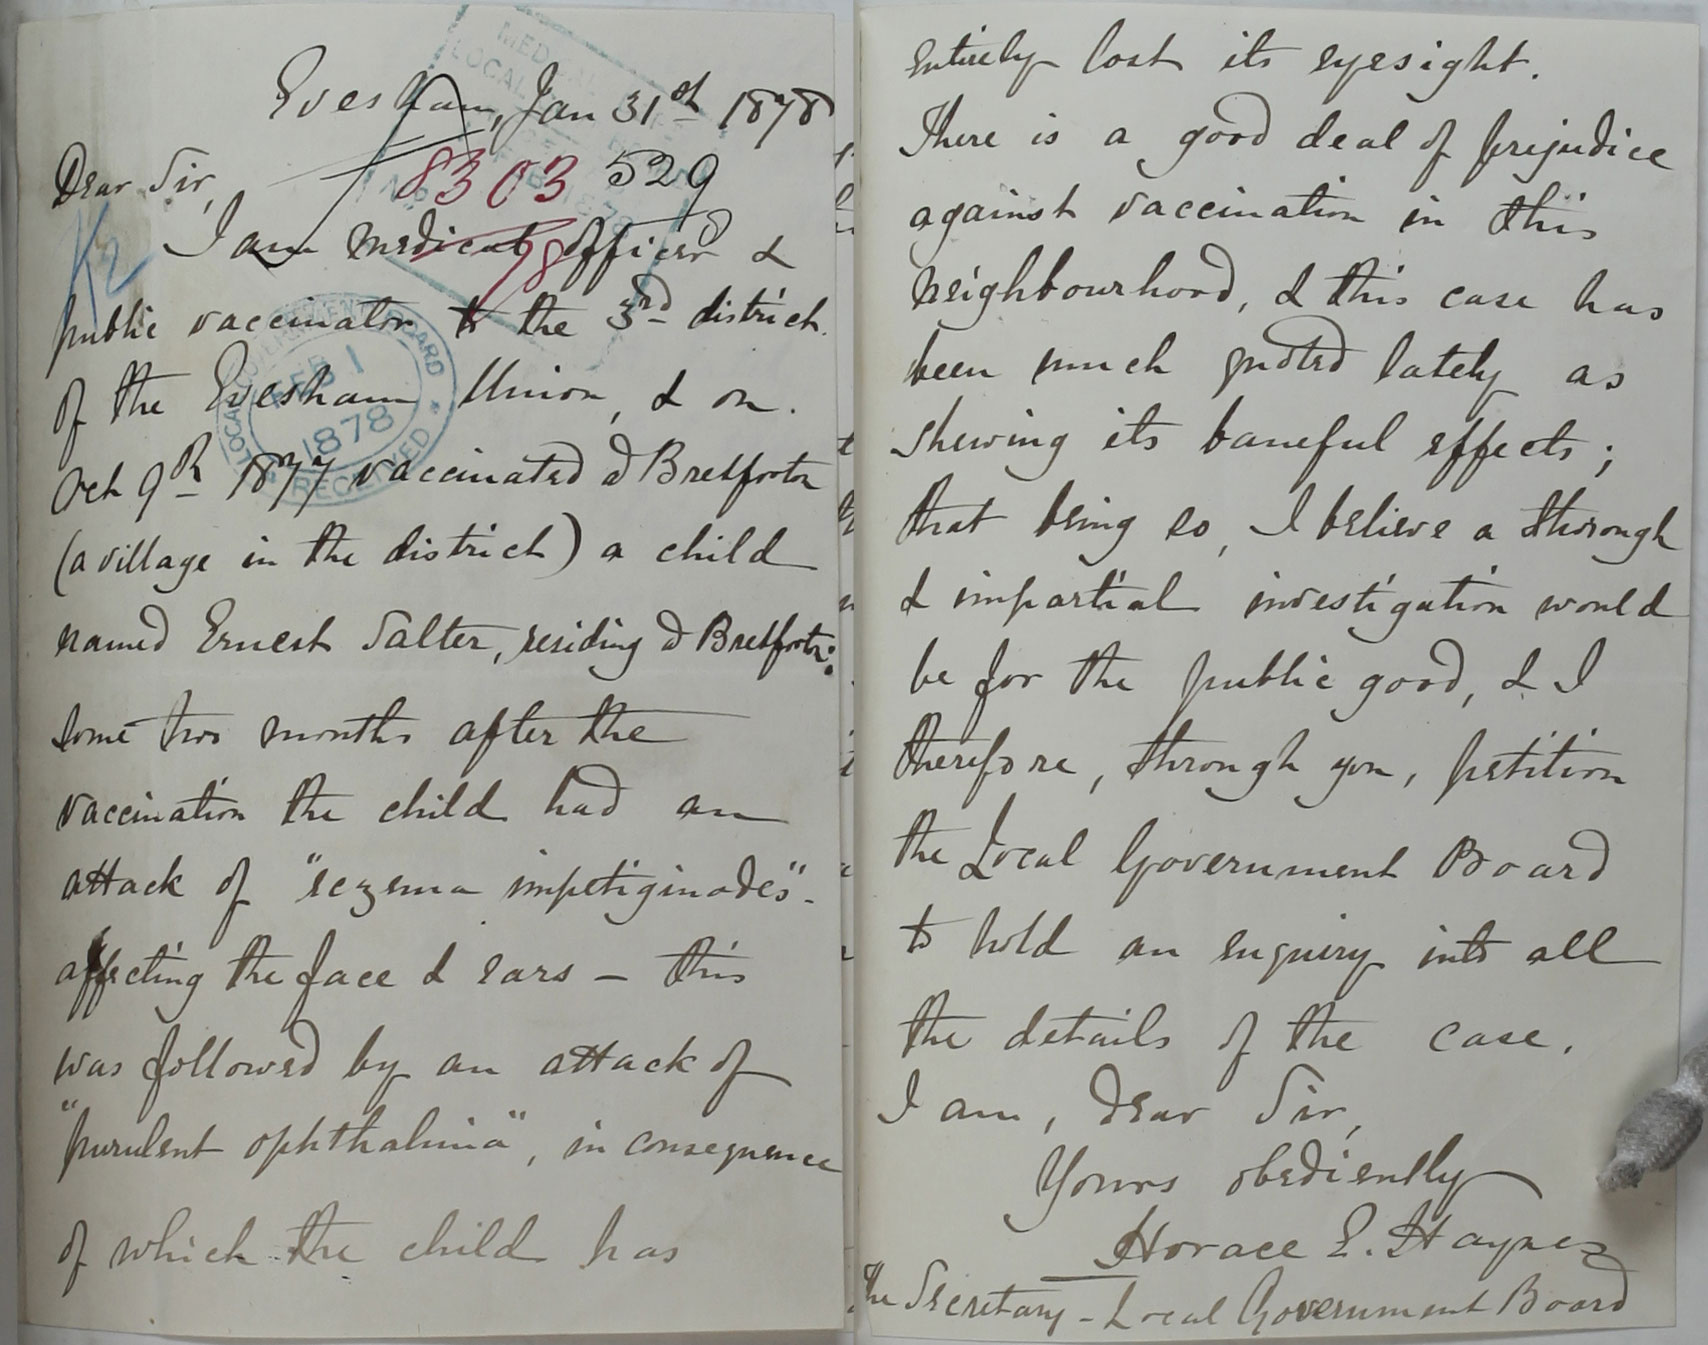 Evesham, Jan 31st 1878
Dear Sir,
8303 529
78
K2
I am medical officer &
public vaccinator to the 3rd district
of the Evesham Union, & on
FEB 1
1878
RECEIVED
Oct 9th 1877 vaccinated at Bretforton
(a village in the district) a child
named Ernest Salter, residing at Bretforton:
some two months after the
vaccination the child had an
attack of "eczema impetiginodes" -
affecting the face & ears — this
was followed by an attack of
"purulent ophthalmia", in consequence
of which the child has
entirely lost its eyesight.
There is a good deal of prejudice
against vaccination in this
neighbourhood, & this case has
been much quoted lately as
shewing its baneful effects;
that being so, I believe a thorough
& impartial investigation would
be for the public good, & I
therefore, through you, petition
the Local Government Board
to hold an enquiry into all
the details of the case.
I am, dear Sir,
Yours obediently
Horace E. Haynes
The Secretary - Local Government Board